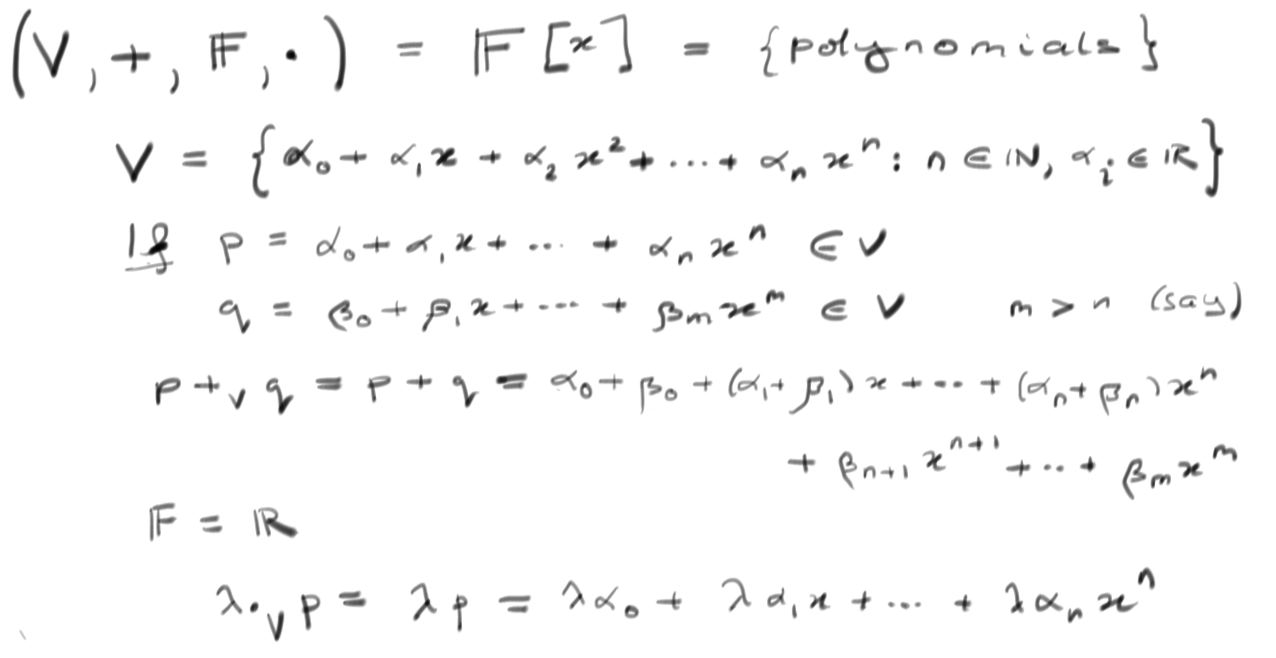 (V, +, 𝔽, ·) = 𝔽[x] = {polynomials}
V = {α₀ + α₁x + α₂x² + ... + αₙxⁿ : n ∈ ℕ, αᵢ ∈ ℝ}
If p = α₀ + α₁x + ... + αₙxⁿ ∈ V
q = β₀ + β₁x + ... + βₘxᵐ ∈ V m > n (say)
p +ᵥ q = p + q = α₀ + β₀ + (α₁ + β₁)x + ... + (αₙ + βₙ)xⁿ
+ βₙ₊₁xⁿ⁺¹ + ... + βₘxᵐ
𝔽 = ℝ
λ ·ᵥ p = λp = λα₀ + λα₁x + ... + λαₙxⁿ